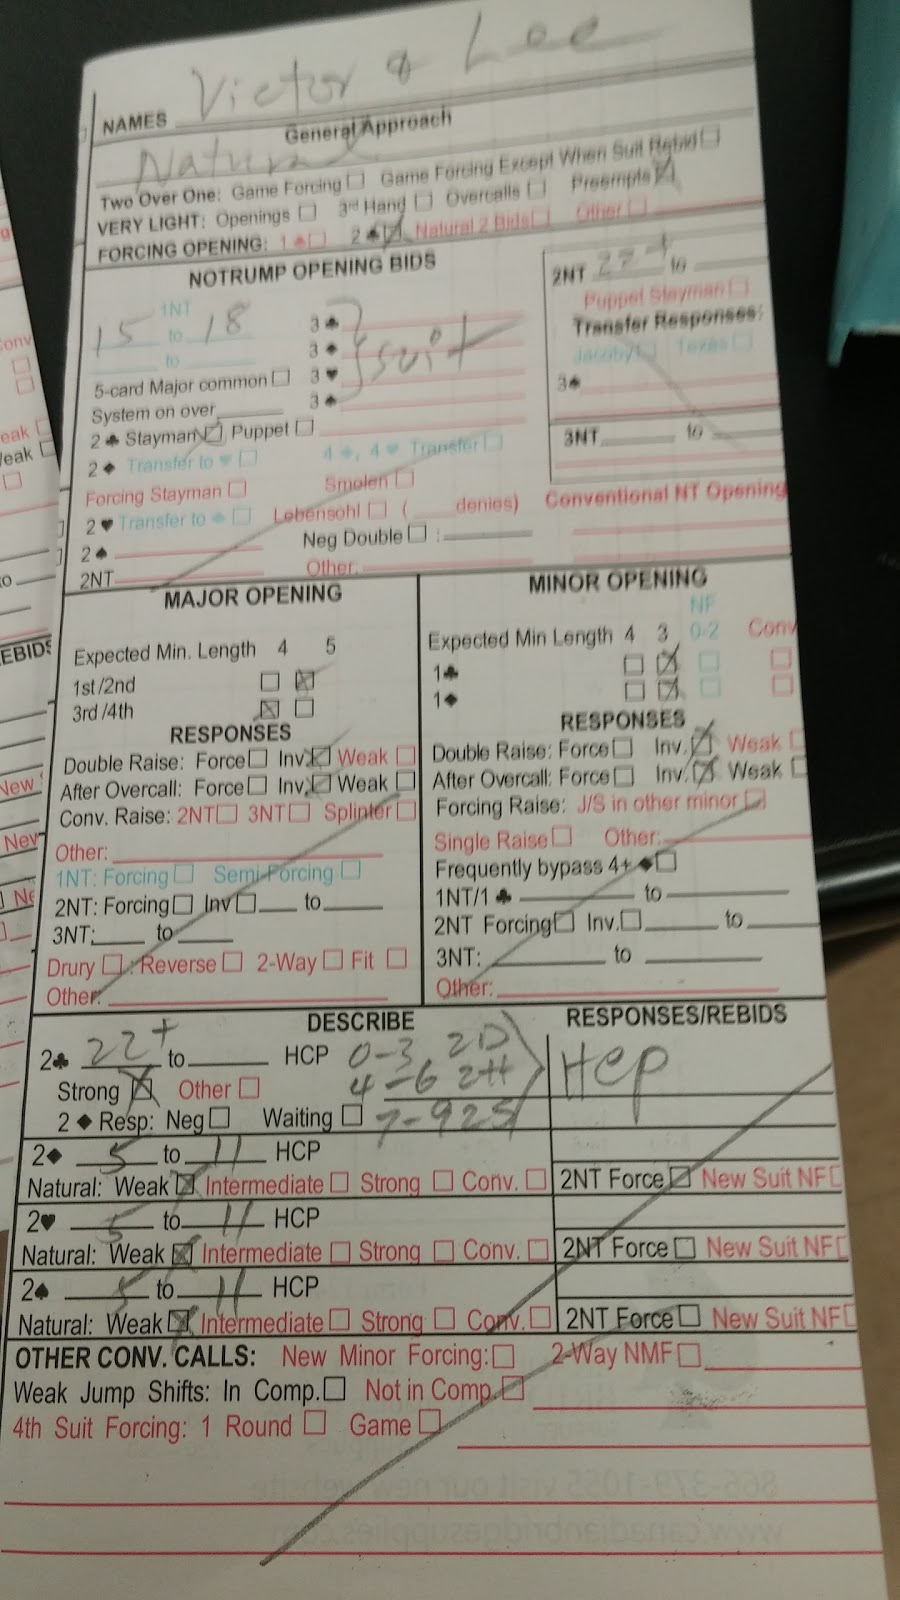 NAMES Victor & Lee
General Approach
Natural
Two Over One: Game Forcing☐ Game Forcing Except When Suit Rebid☐
VERY LIGHT: Openings ☐ 3rd Hand ☐ Overcalls ☐ Preempts ☒
FORCING OPENING: 1♣☐ 2♣☒ Natural 2 Bids☐ Other ☐
NOTRUMP OPENING BIDS
1NT
15 to 18
to
5-card Major common ☐
System on over
2♣ Stayman☒ Puppet ☐
2♦ Transfer to ♥ ☐
Forcing Stayman ☐
2♥ Transfer to ♠ ☐
2♠
2NT
3♣
3♦
3♥
3♠
suit
4♦, 4♥ Transfer☐
Smolen ☐
Lebensohl ☐ ( denies)
Neg Double ☐ :
Other:
2NT 22+ to
Puppet Stayman☐
Transfer Responses:
Jacoby☐ Texas ☐
3♠
3NT to
Conventional NT Opening
MAJOR OPENING
Expected Min. Length 4 5
1st/2nd ☐ ☒
3rd/4th ☒ ☐
RESPONSES
Double Raise: Force☐ Inv.☒ Weak ☐
After Overcall: Force☐ Inv.☒ Weak ☐
Conv. Raise: 2NT☐ 3NT☐ Splinter☐
Other:
1NT: Forcing ☐ Semi-Forcing ☐
2NT: Forcing☐ Inv☐ to
3NT: to
Drury ☐: Reverse ☐ 2-Way☐ Fit ☐
Other:
MINOR OPENING
NF
Expected Min Length 4 3 0-2 Conv
1♣ ☐ ☒ ☐ ☐
1♦ ☐ ☒ ☐ ☐
RESPONSES
Double Raise: Force☐ Inv.☒ Weak ☐
After Overcall: Force☐ Inv.☒ Weak ☐
Forcing Raise: J/S in other minor ☐
Single Raise☐ Other:
Frequently bypass 4+♦☐
1NT/1♣ to
2NT Forcing☐ Inv.☐ to
3NT: to
Other:
DESCRIBE RESPONSES/REBIDS
2♣ 22+ to HCP 0-3 2D
Strong ☒ Other ☐ 4-6 2H
2♦ Resp: Neg☐ Waiting ☐ 7-9 2S
Hcp
2♦ 5 to 11 HCP
Natural: Weak☒ Intermediate ☐ Strong ☐ Conv. ☐ 2NT Force☐ New Suit NF☐
2♥ 5 to 11 HCP
Natural: Weak☒ Intermediate ☐ Strong ☐ Conv. ☐ 2NT Force☐ New Suit NF☐
2♠ 5 to 11 HCP
Natural: Weak☒ Intermediate ☐ Strong ☐ Conv. ☐ 2NT Force☐ New Suit NF☐
OTHER CONV. CALLS: New Minor Forcing:☐ 2-Way NMF☐
Weak Jump Shifts: In Comp.☐ Not in Comp.☐
4th Suit Forcing: 1 Round ☐ Game ☐